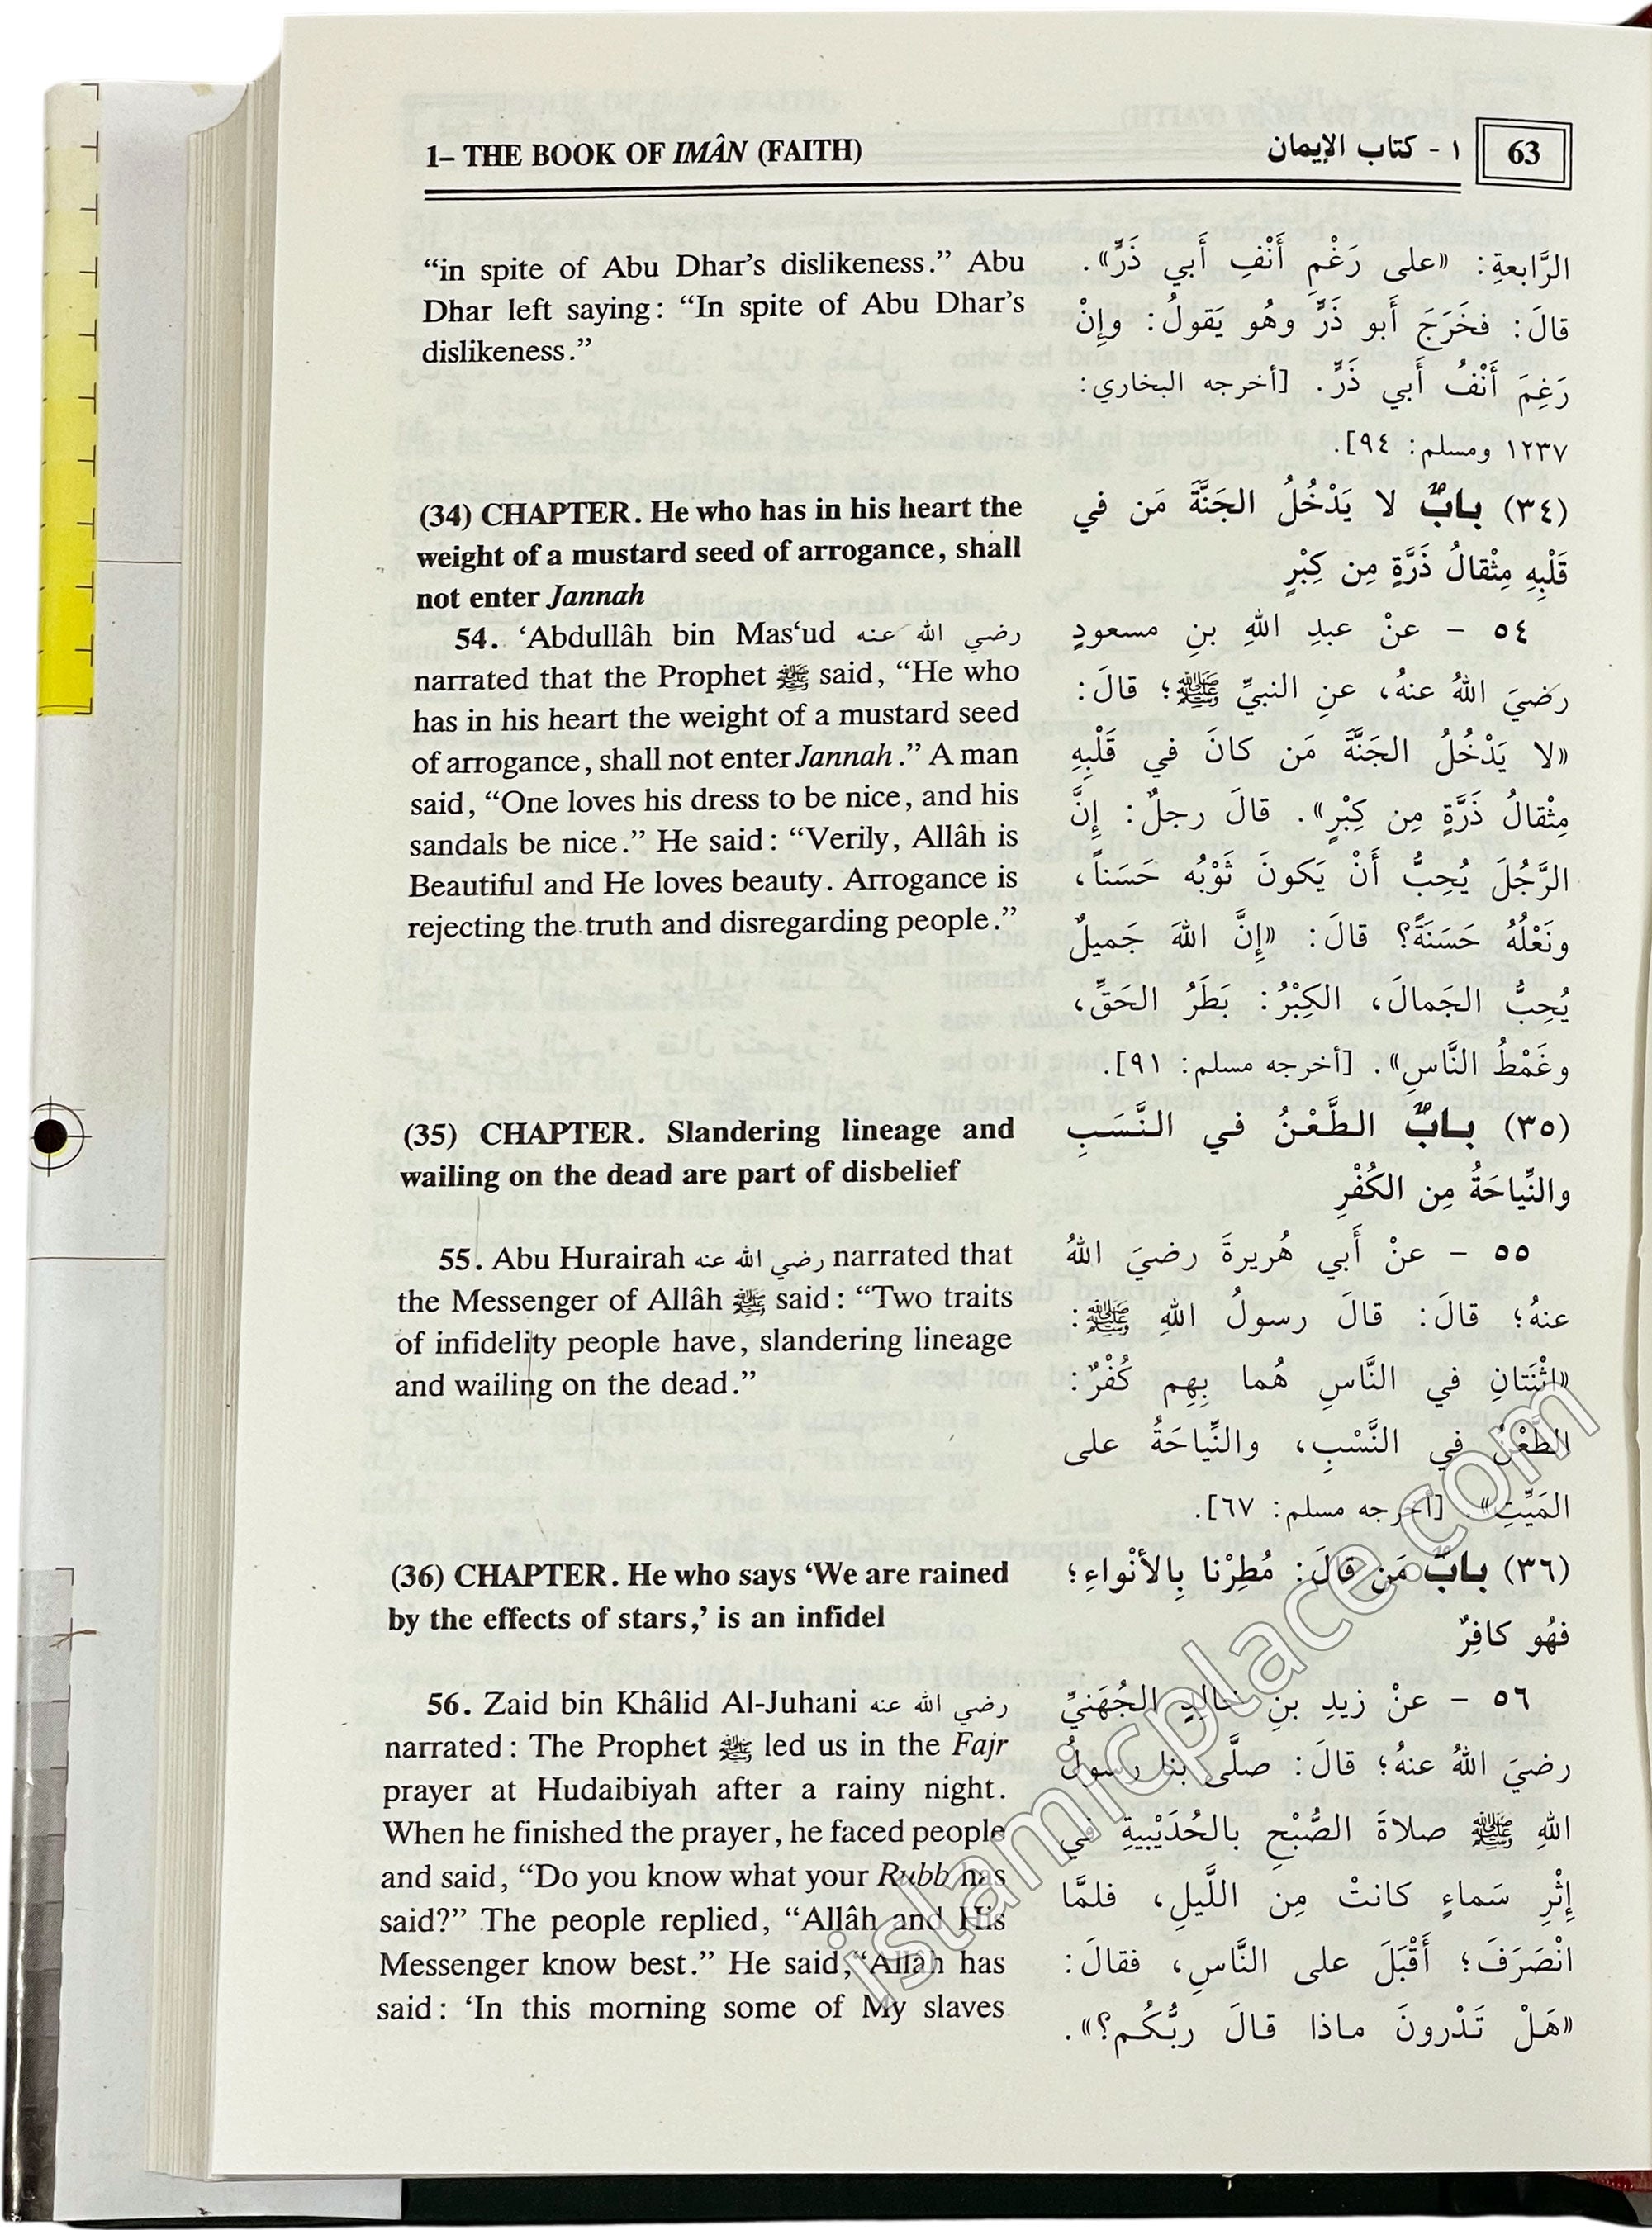 1– THE BOOK OF IMÂN (FAITH)
١ - كتاب الإيمان
63
“in spite of Abu Dhar’s dislikeness.” Abu
Dhar left saying: “In spite of Abu Dhar’s
dislikeness.”
(34) CHAPTER. He who has in his heart the
weight of a mustard seed of arrogance, shall
not enter Jannah
54. ‘Abdullâh bin Mas‘ud رضي الله عنه
narrated that the Prophet ﷺ said, “He who
has in his heart the weight of a mustard seed
of arrogance, shall not enter Jannah.” A man
said, “One loves his dress to be nice, and his
sandals be nice.” He said: “Verily, Allâh is
Beautiful and He loves beauty. Arrogance is
rejecting the truth and disregarding people.”
(35) CHAPTER. Slandering lineage and
wailing on the dead are part of disbelief
55. Abu Hurairah رضي الله عنه narrated that
the Messenger of Allâh ﷺ said: “Two traits
of infidelity people have, slandering lineage
and wailing on the dead.”
(36) CHAPTER. He who says ‘We are rained
by the effects of stars,’ is an infidel
56. Zaid bin Khâlid Al-Juhani رضي الله عنه
narrated: The Prophet ﷺ led us in the Fajr
prayer at Hudaibiyah after a rainy night.
When he finished the prayer, he faced people
and said, “Do you know what your Rubb has
said?” The people replied, “Allâh and His
Messenger know best.” He said,“Allâh has
said: ‘In this morning some of My slaves
الرَّابعةِ: «على رَغْمِ أَنْفِ أَبي ذَرٍّ».
قالَ: فخَرَجَ أَبو ذَرٍّ وهُو يَقولُ: وإِنْ
رَغِمَ أَنْفُ أَبي ذَرٍّ. [أخرجه البخاري:
١٢٣٧ ومسلم: ٩٤].
(٣٤) بابٌ لا يَدْخُلُ الجَنَّةَ مَن في
قَلْبِهِ مِثْقالُ ذَرَّةٍ مِن كِبْرٍ
٥٤ - عنْ عبدِ اللهِ بنِ مسعودٍ
رضيَ اللهُ عنهُ، عنِ النبيِّ ﷺ؛ قالَ:
«لا يَدْخُلُ الجَنَّةَ مَن كانَ في قَلْبِهِ
مِثْقالُ ذَرَّةٍ مِن كِبْرٍ». قالَ رجلٌ: إِنَّ
الرَّجُلَ يُحِبُّ أَنْ يَكونَ ثَوْبُه حَسَناً،
ونَعْلُهُ حَسَنَةً؟ قالَ: «إِنَّ اللهَ جَميلٌ
يُحِبُّ الجَمالَ، الكِبْرُ: بَطَرُ الحَقِّ،
وغَمْطُ النَّاسِ». [أخرجه مسلم: ٩١].
(٣٥) بابٌ الطَّعْنُ في النَّسَبِ
والنِّياحَةُ مِن الكُفْرِ
٥٥ - عنْ أَبي هُريرةَ رضيَ اللهُ
عنهُ؛ قالَ: قالَ رسولُ اللهِ ﷺ:
«اثْنَتانِ في النَّاسِ هُما بِهِم كُفْرٌ:
الطَّعْنُ في النَّسْبِ، والنِّياحَةُ على
المَيِّتِ». [أخرجه مسلم: ٦٧].
(٣٦) بابٌ مَن قالَ: مُطِرْنا بِالأنْواءِ؛
فهُو كافِرٌ
٥٦ - عنْ زيدِ بنِ خالِدٍ الجُهَنيِّ
رضيَ اللهُ عنهُ؛ قالَ: صلَّى بنا رسولُ
اللهِ ﷺ صلاةَ الصُّبْحِ بالحُدَيْبيةِ في
إِثْرِ سَماءٍ كانتْ مِن اللَّيلِ، فلمَّا
انْصَرَفَ؛ أَقْبَلَ على النَّاسِ، فقالَ:
«هَلْ تَدْرونَ ماذا قالَ ربُّكُم؟».
islamicplace.com